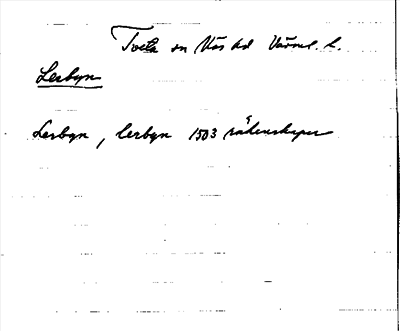 Tveta sn Näs hd Värml. l.
Lerbyn
Lerbyn, lerbyn 1503 räkenskaper